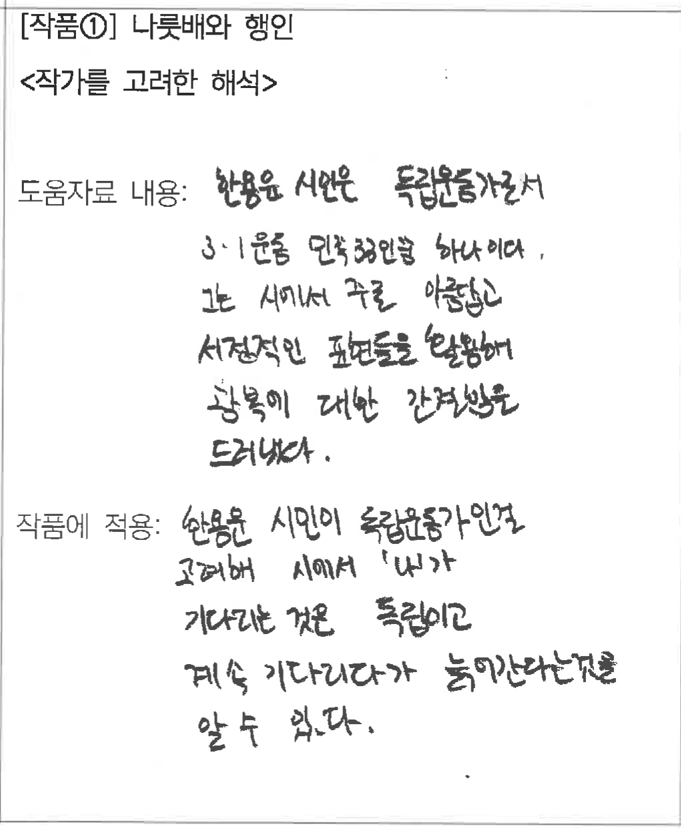 [작품①] 나룻배와 행인
<작가를 고려한 해석>
도움자료 내용: 한용운 시인은 독립운동가로서
3·1운동 민족33인중 하나이다.
그는 시에서 주로 아름답고
서정적인 표현들을 활용해
광복에 대한 간절함을
드러냈다.
작품에 적용: 한용운 시인이 독립운동가인걸
고려해 시에서 '나'가
기다리는 것은 독립이고
계속 기다리다가 늙어간다는것을
알 수 있다.